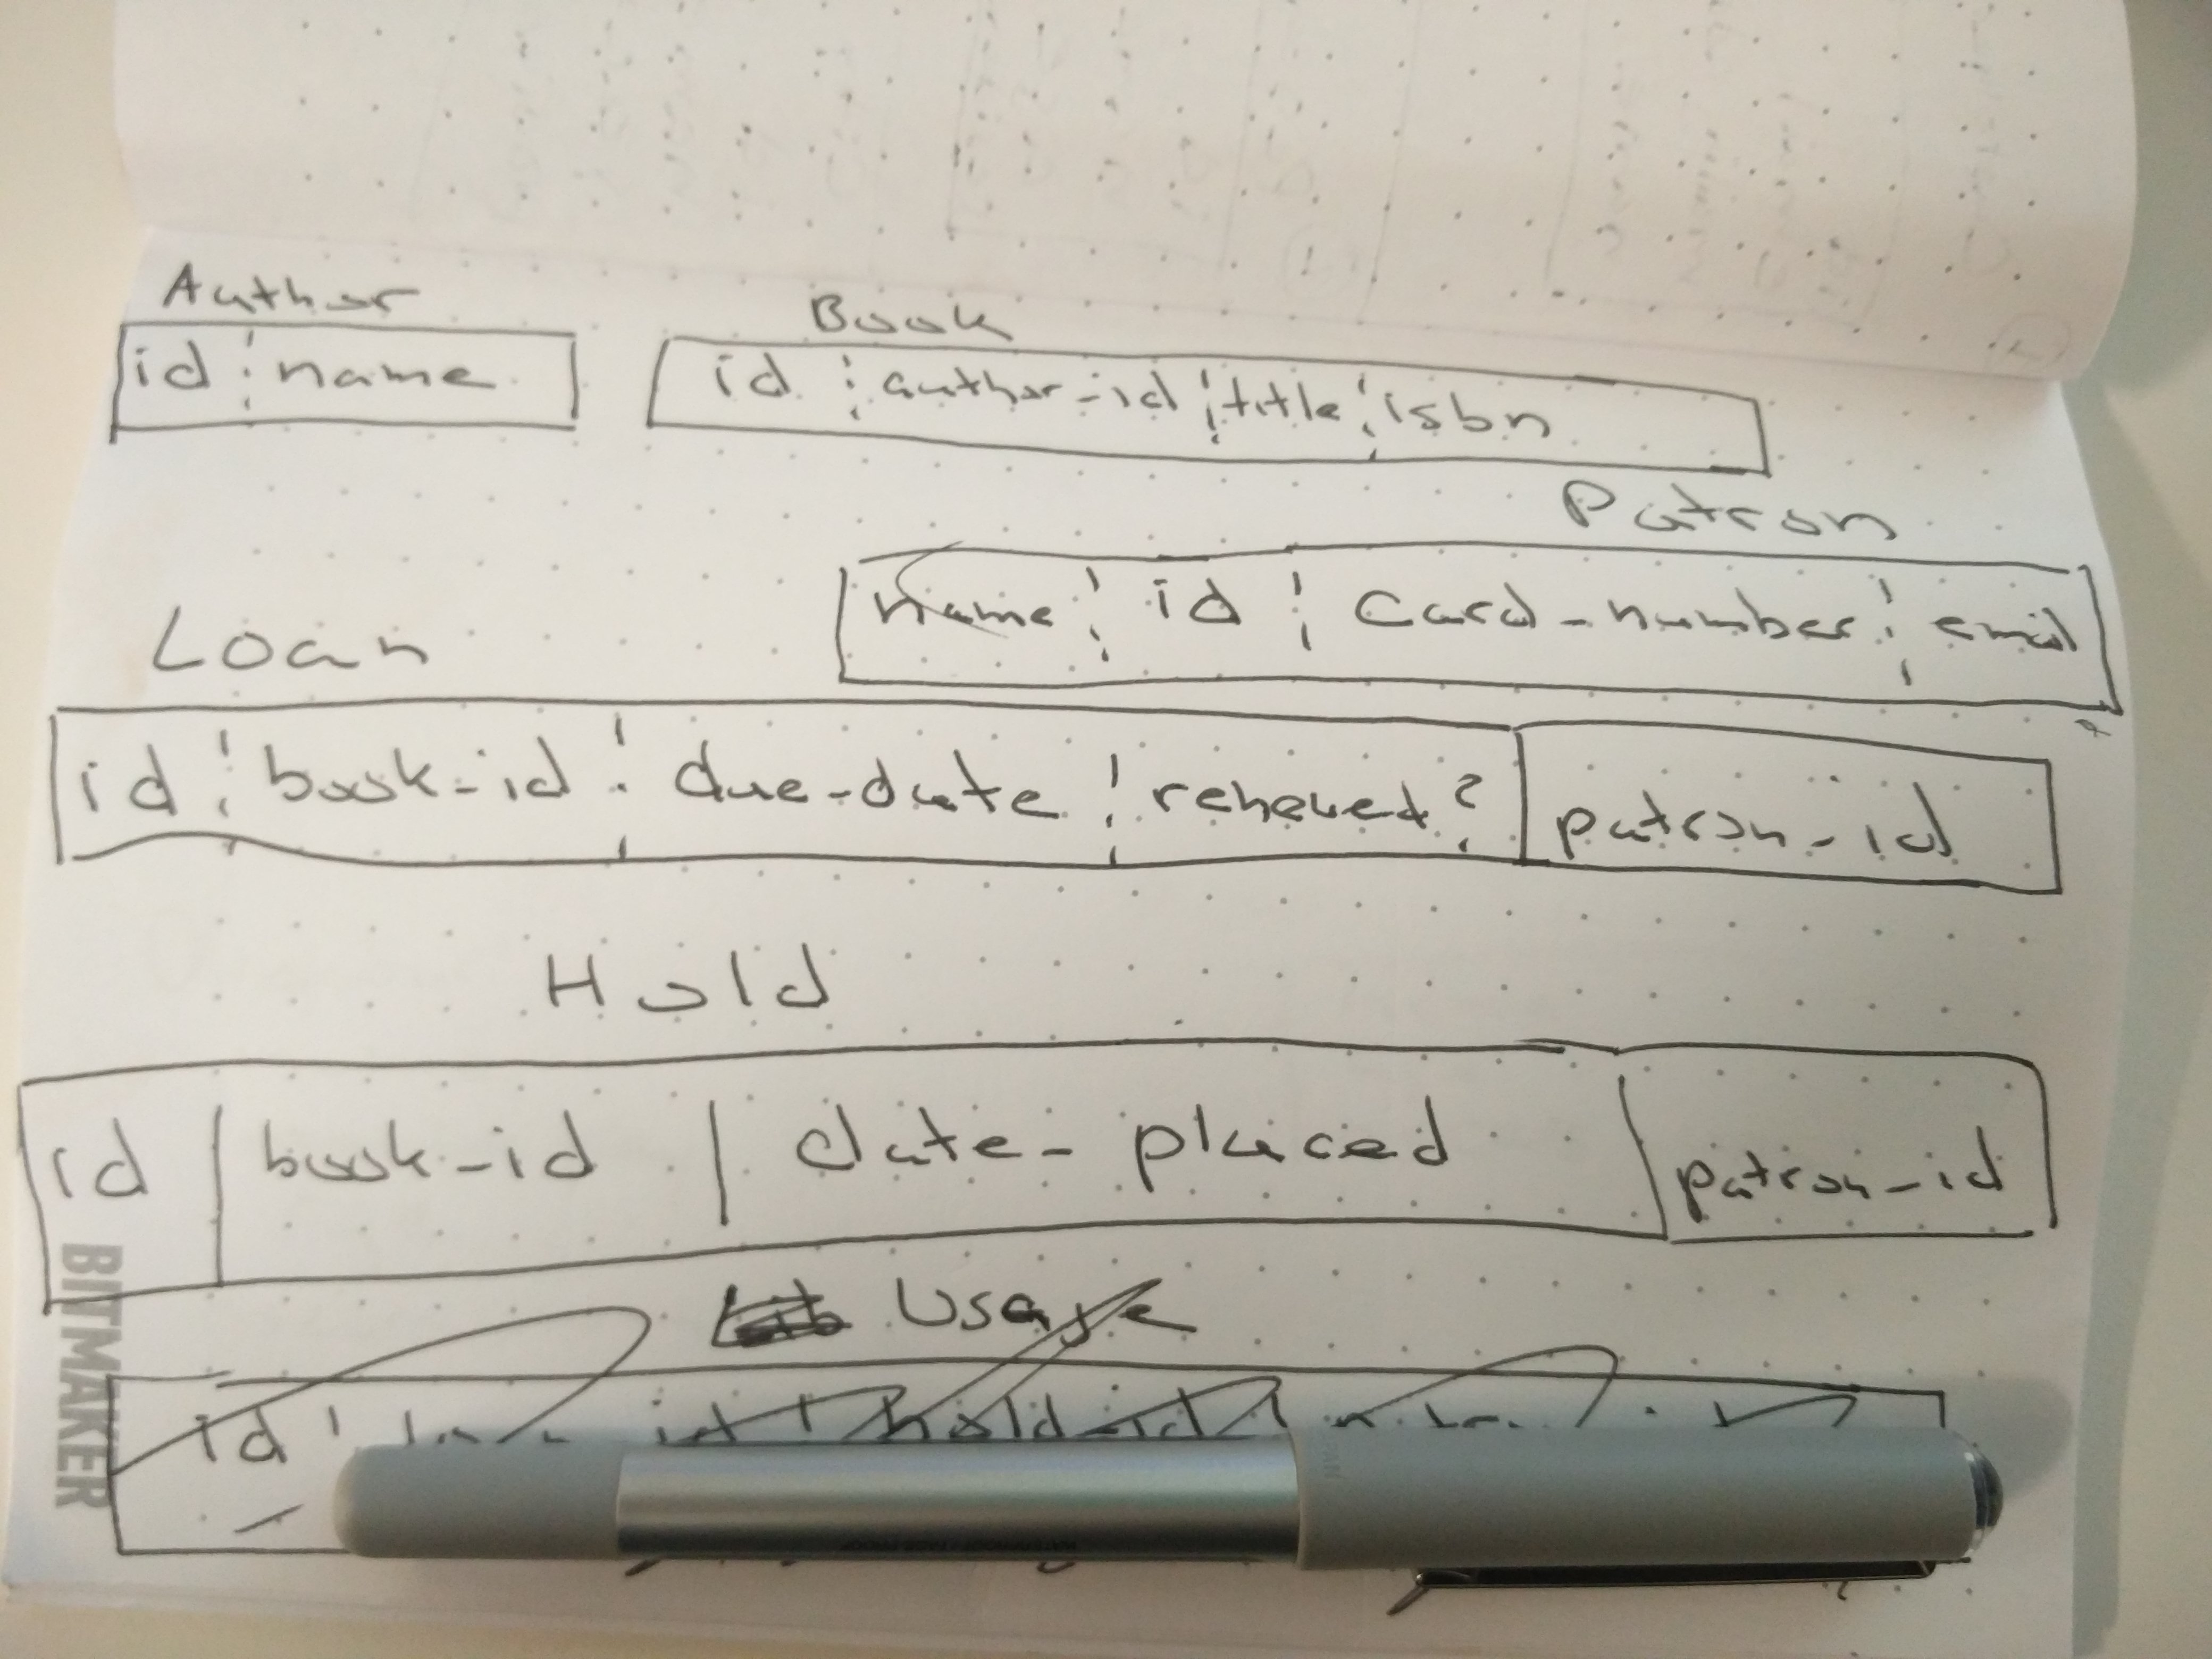 Author
id name
Book
id author-id title isbn
Patron
name id card-number email
Loan
id book-id due-date renewed? patron-id
Hold
id book-id date-placed patron-id
Usage
id hold-id
BITMAKER